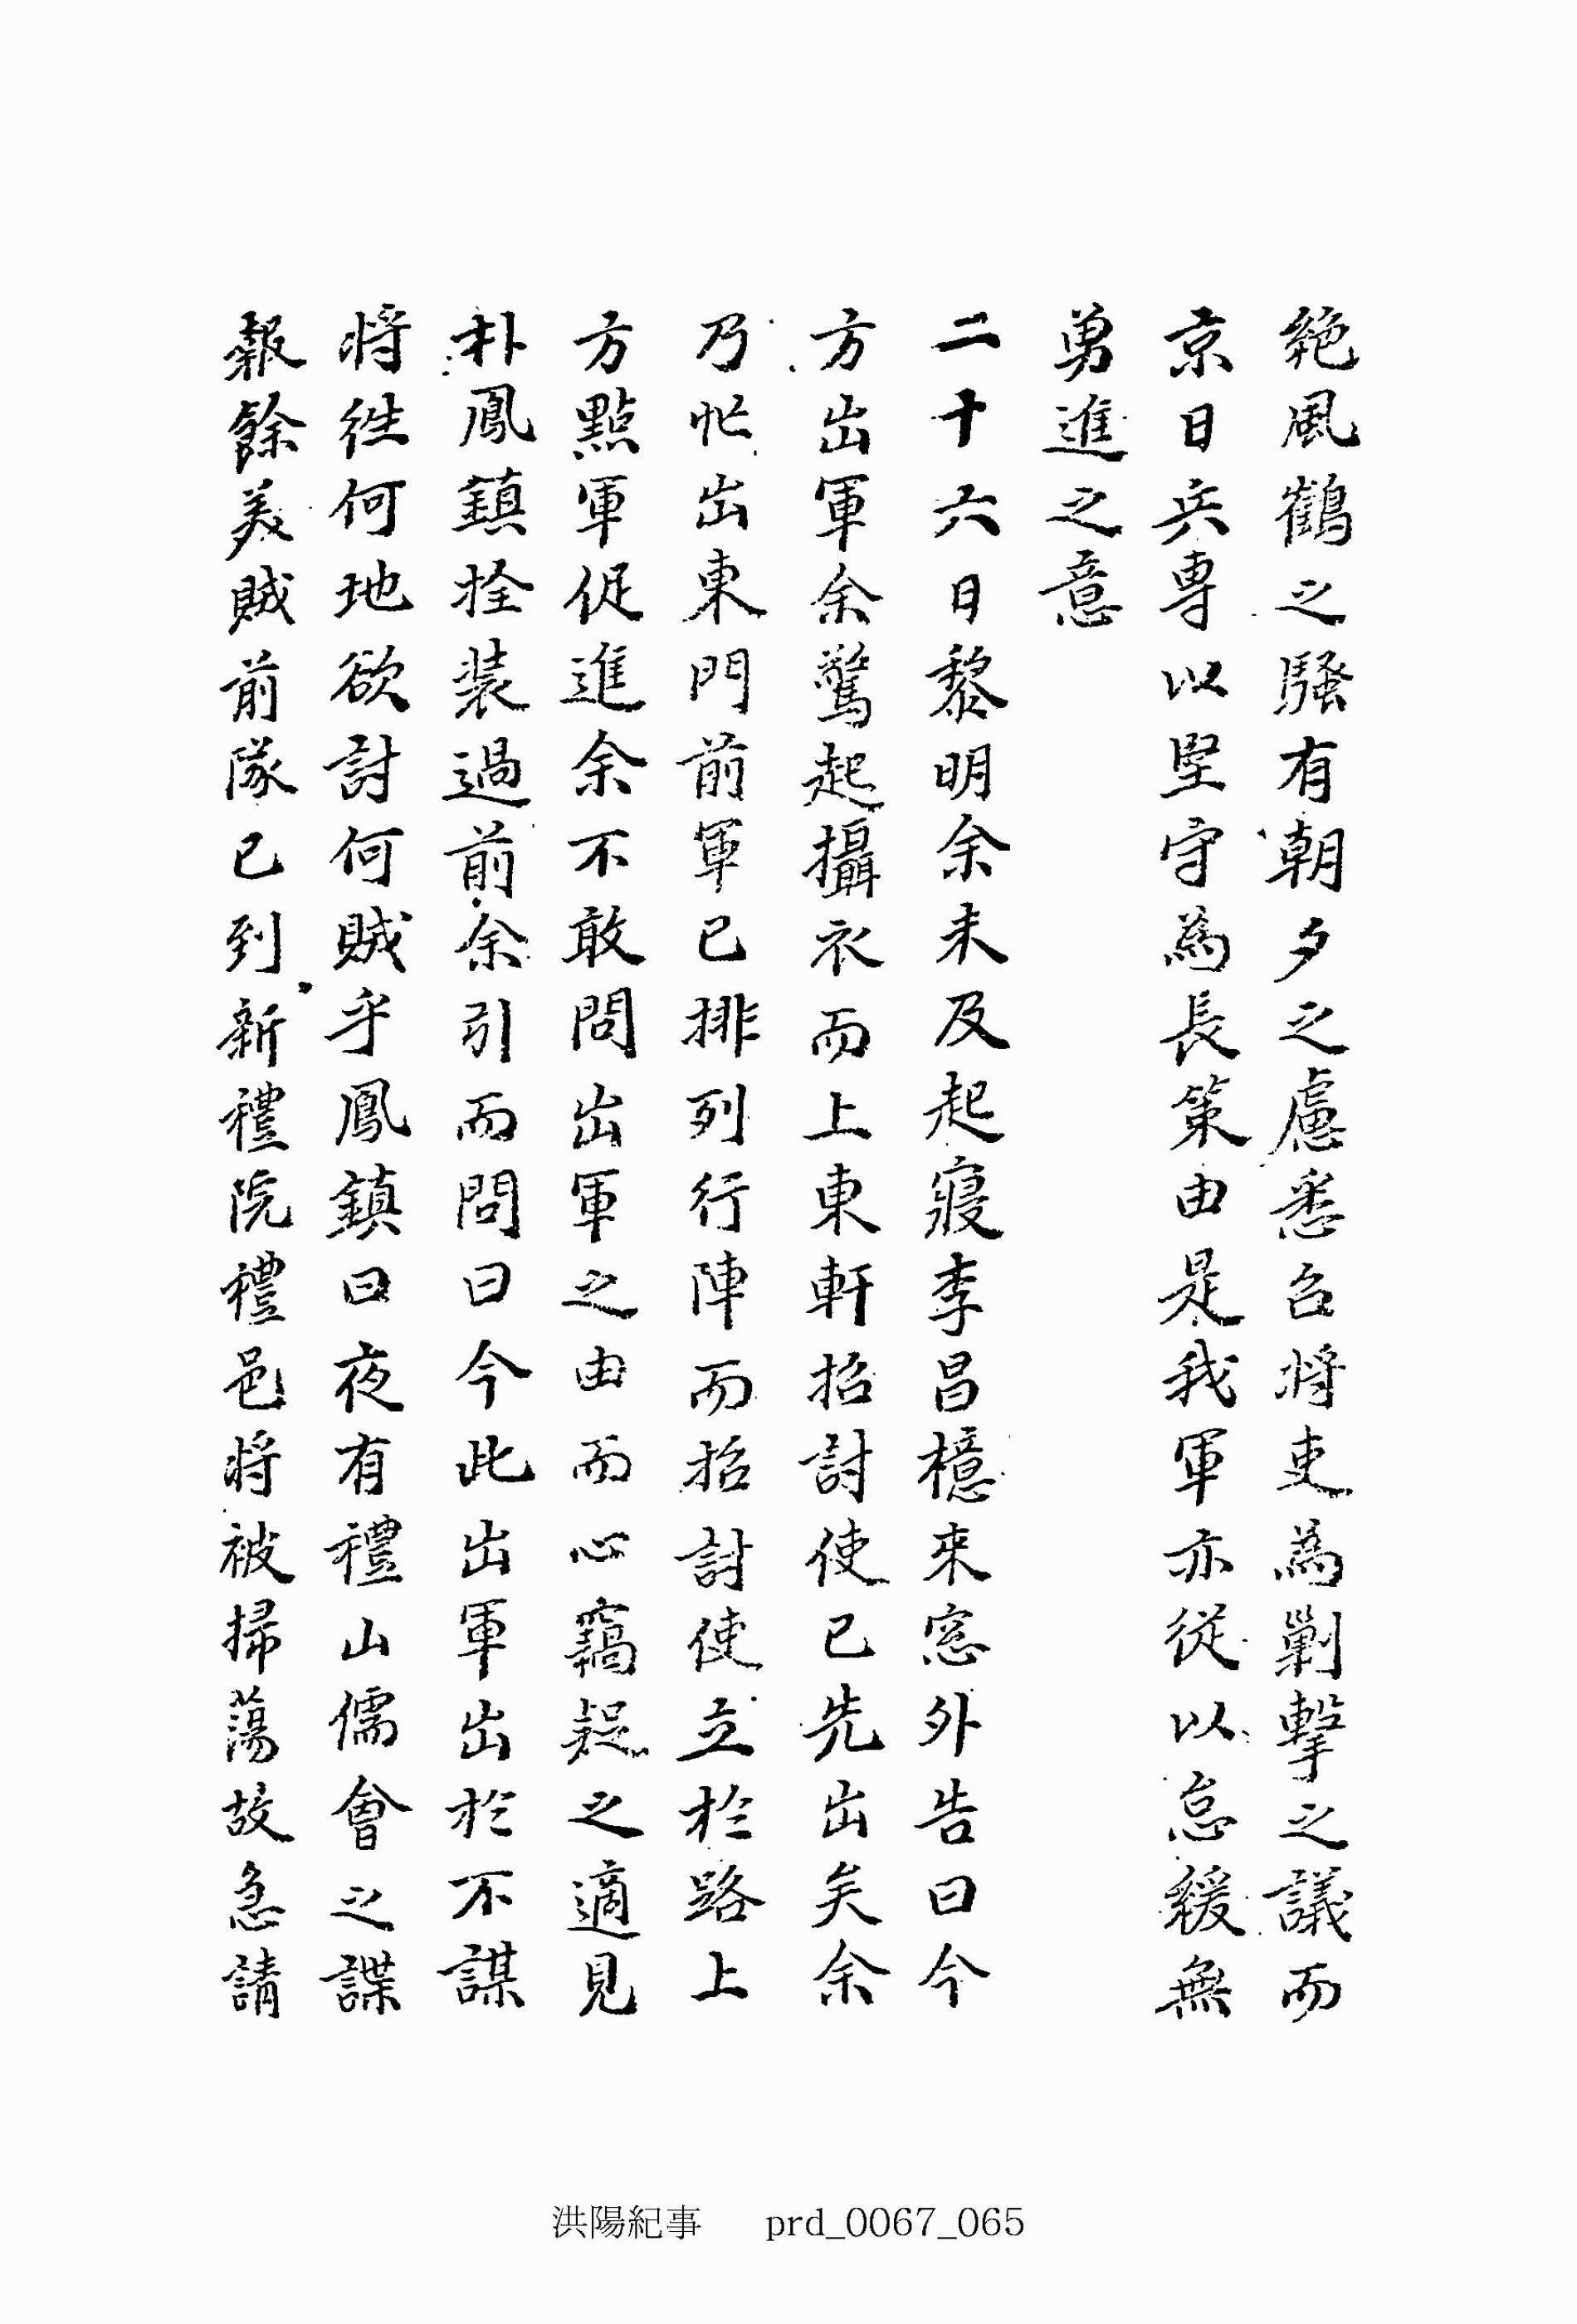 絶風鶴之騷有朝夕之慮悉召將吏爲剿擊之議而
京日兵專以堅守爲長策由是我軍亦從以怠緩無
勇進之意
二十六日黎明余未及起寢李昌檍來窓外告曰今
方出軍余驚起攝衣而上東軒招討使已先出矣余
乃忙出東門前軍已排列行陣而招討使立於路上
方點軍促進余不敢問出軍之由而心竊疑之適見
朴鳳鎭拴裝過前余引而問曰今此出軍出於不謀
將徃何地欲討何賊乎鳳鎭曰夜有禮山儒會之諜
報餘美賊前隊已到新禮院禮邑將被掃蕩故急請
洪陽紀事 prd_0067_065